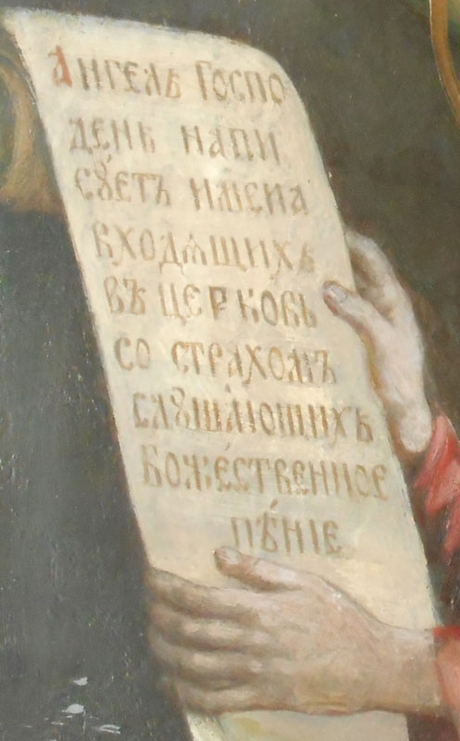 Ангелъ Госпо
денъ напи
сꙋетъ имена
входѧщихъ
въ церковь
со страхомъ
слꙋшающихъ
Божественное
пѣніе